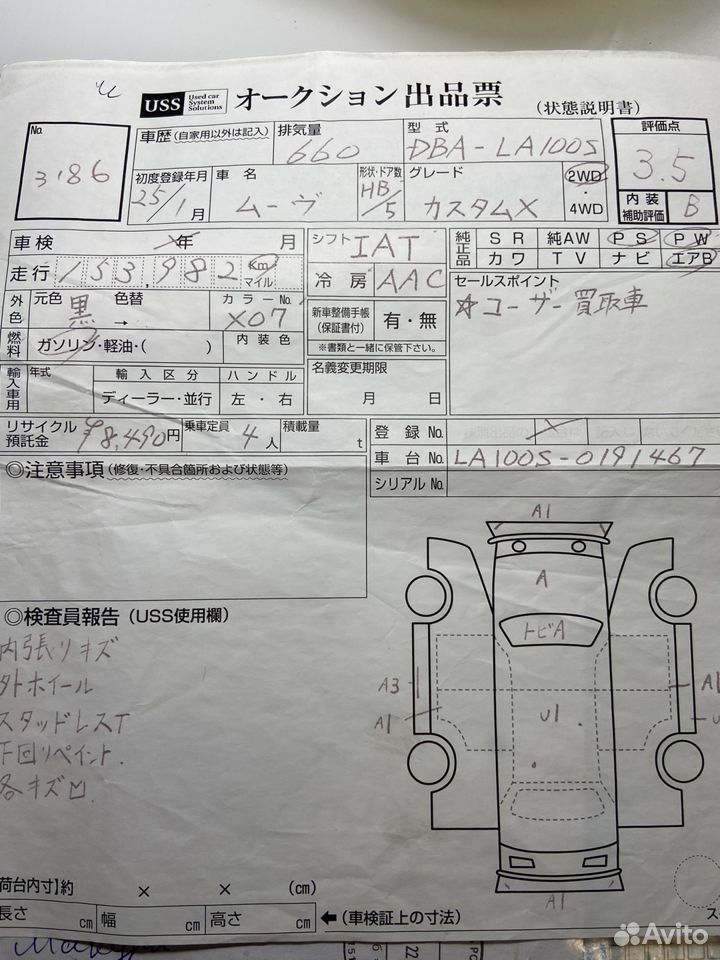 USS Used car System Solutions オークション出品票 (状態説明書)
No. 3186
車歴 (自家用以外は記入)
排気量 660
型式 DBA-LA100S
評価点 3.5
初度登録年月 25/1月
車名 ムーヴ
形状・ドア数 HB/5
グレード カスタムX
2WD・4WD
内装補助評価 B
車検 年 月
シフト IAT
純正品 SR 純AW PS PW
カワ TV ナビ エアB
走行 153,982 Km マイル
冷房 AAC
セールスポイント
☆ユーザー買取車
外色 元色 黒 → 色替 カラーNo. X07
新車整備手帳(保証書付) 有・無
※書類と一緒に保管下さい。
燃料 ガソリン・軽油・( ) 内装色
輸入車用 年式 輸入区分 ハンドル
ディーラー・並行 左・右
名義変更期限
月 日
リサイクル預託金 ¥8,490円 乗車定員 4人 積載量 t
登録No.
車台No. LA100S-0191467
シリアルNo.
◎注意事項 (修復・不具合箇所および状態等)
◎検査員報告 (USS使用欄)
内張りキズ
外ホイール
スタッドレスT
下回りペイント.
各キズ凹.
A1
A
トビA
A3
A1
A1
U1.
A1
荷台内寸】約 × × (cm)
長さ cm 幅 cm 高さ cm ←(車検証上の寸法)
Avito